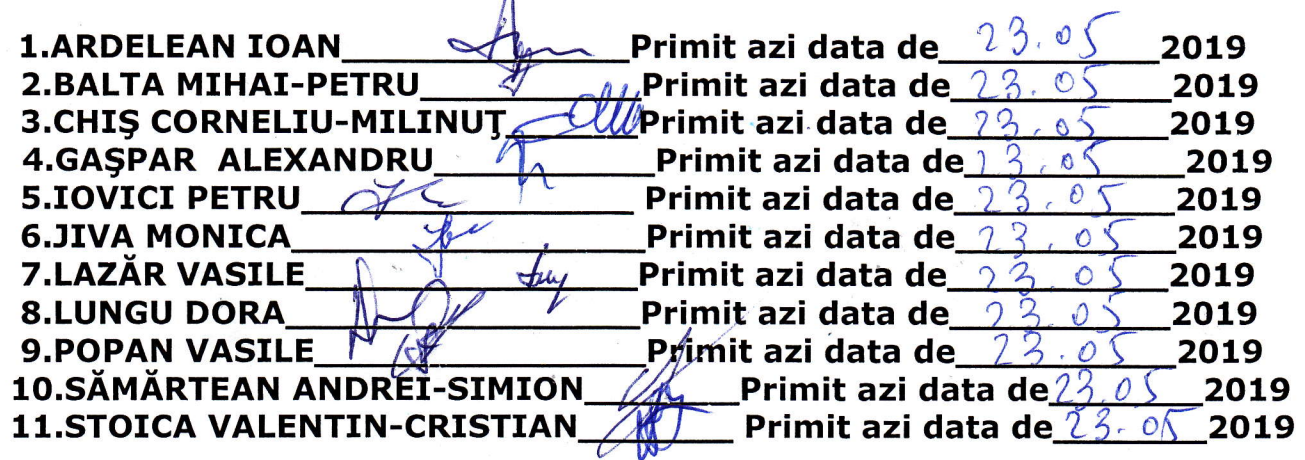 1.ARDELEAN IOAN____Primit azi data de 23.05 2019
2.BALTA MIHAI-PETRU____Primit azi data de 23.05 2019
3.CHIŞ CORNELIU-MILINUŢ____Primit azi data de 23.05 2019
4.GAŞPAR ALEXANDRU____Primit azi data de 23.05 2019
5.IOVICI PETRU____Primit azi data de 23.05 2019
6.JIVA MONICA____Primit azi data de 23.05 2019
7.LAZĂR VASILE____Primit azi data de 23.05 2019
8.LUNGU DORA____Primit azi data de 23.05 2019
9.POPAN VASILE____Primit azi data de 23.05 2019
10.SĂMĂRTEAN ANDREI-SIMION____Primit azi data de 23.05 2019
11.STOICA VALENTIN-CRISTIAN____Primit azi data de 23.05 2019